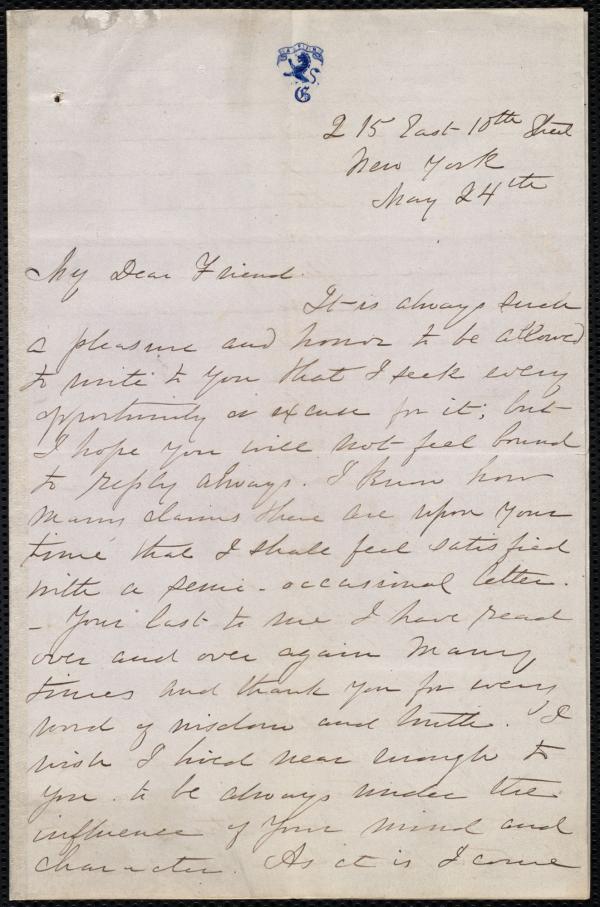 G
215 East 10th Street
New York
May 24th
My Dear Friend.
It is always such
a pleasure and honor to be allowed
to write to you that I seek every
opportunity or excuse for it; but
I hope you will not feel bound
to reply always. I know how
many claims there are upon your
time that I shall feel satisfied
with a semi-occasional letter.
- Your last to me I have read
over and over again many
times and thank you for every
word of wisdom and truth. I
wish I lived near enough to
you to be always under the
influence of your mind and
character. As it is I come